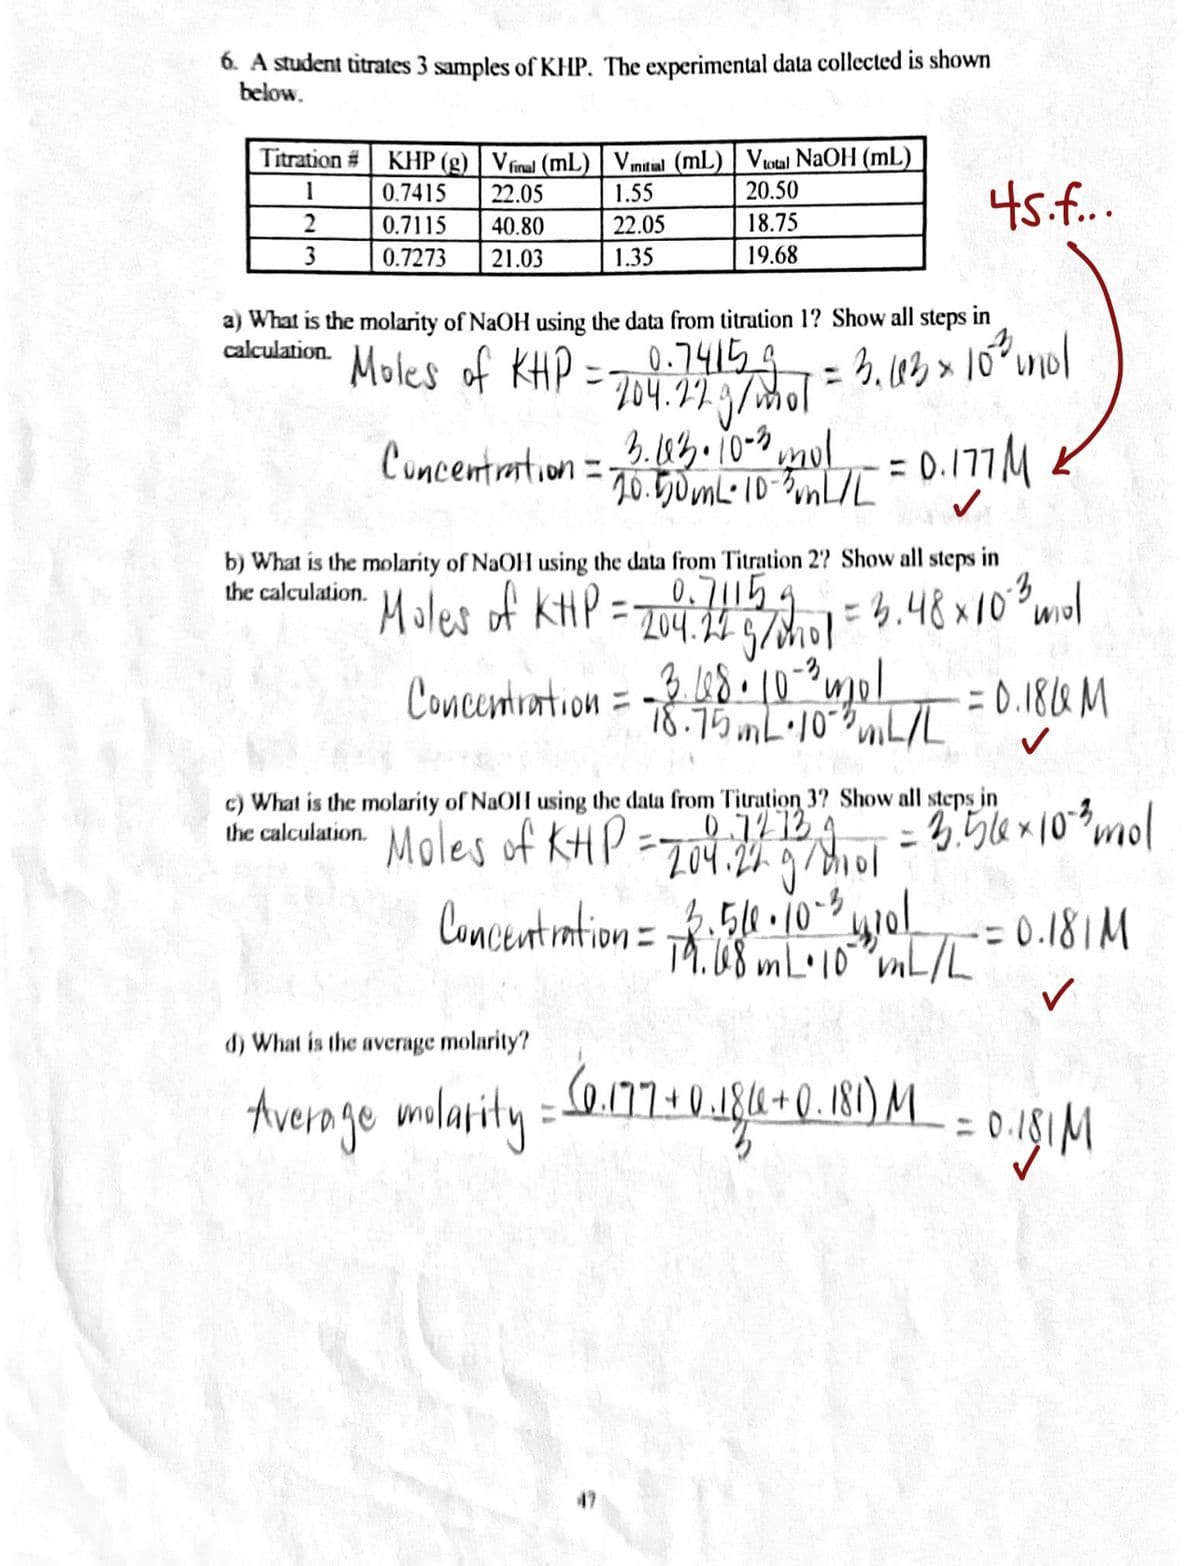 6. A student titrates 3 samples of KHP. The experimental data collected is shown
below.
Titration # KHP (g) Vfinal (mL) Vinitial (mL) Vtotal NaOH (mL)
1 0.7415 22.05 1.55 20.50
2 0.7115 40.80 22.05 18.75
3 0.7273 21.03 1.35 19.68
4s.f...
a) What is the molarity of NaOH using the data from titration 1? Show all steps in
calculation.
Moles of KHP = 0.7415 g / 204.22 g/mol = 3.63 × 10⁻³ mol
Concentration = 3.63 · 10⁻³ mol / 20.50 mL · 10⁻³ mL/L = 0.177 M ✓
b) What is the molarity of NaOH using the data from Titration 2? Show all steps in
the calculation.
Moles of KHP = 0.7115 g / 204.22 g/mol = 3.48 × 10⁻³ mol
Concentration = 3.68 · 10⁻³ mol / 18.75 mL · 10⁻³ mL/L = 0.186 M ✓
c) What is the molarity of NaOH using the data from Titration 3? Show all steps in
the calculation.
Moles of KHP = 0.7273 g / 204.22 g/mol = 3.56 × 10⁻³ mol
Concentration = 3.56 · 10⁻³ mol / 19.68 mL · 10⁻³ mL/L = 0.181 M ✓
d) What is the average molarity?
Average molarity = (0.177 + 0.186 + 0.181) M / 3 = 0.181 M ✓
47